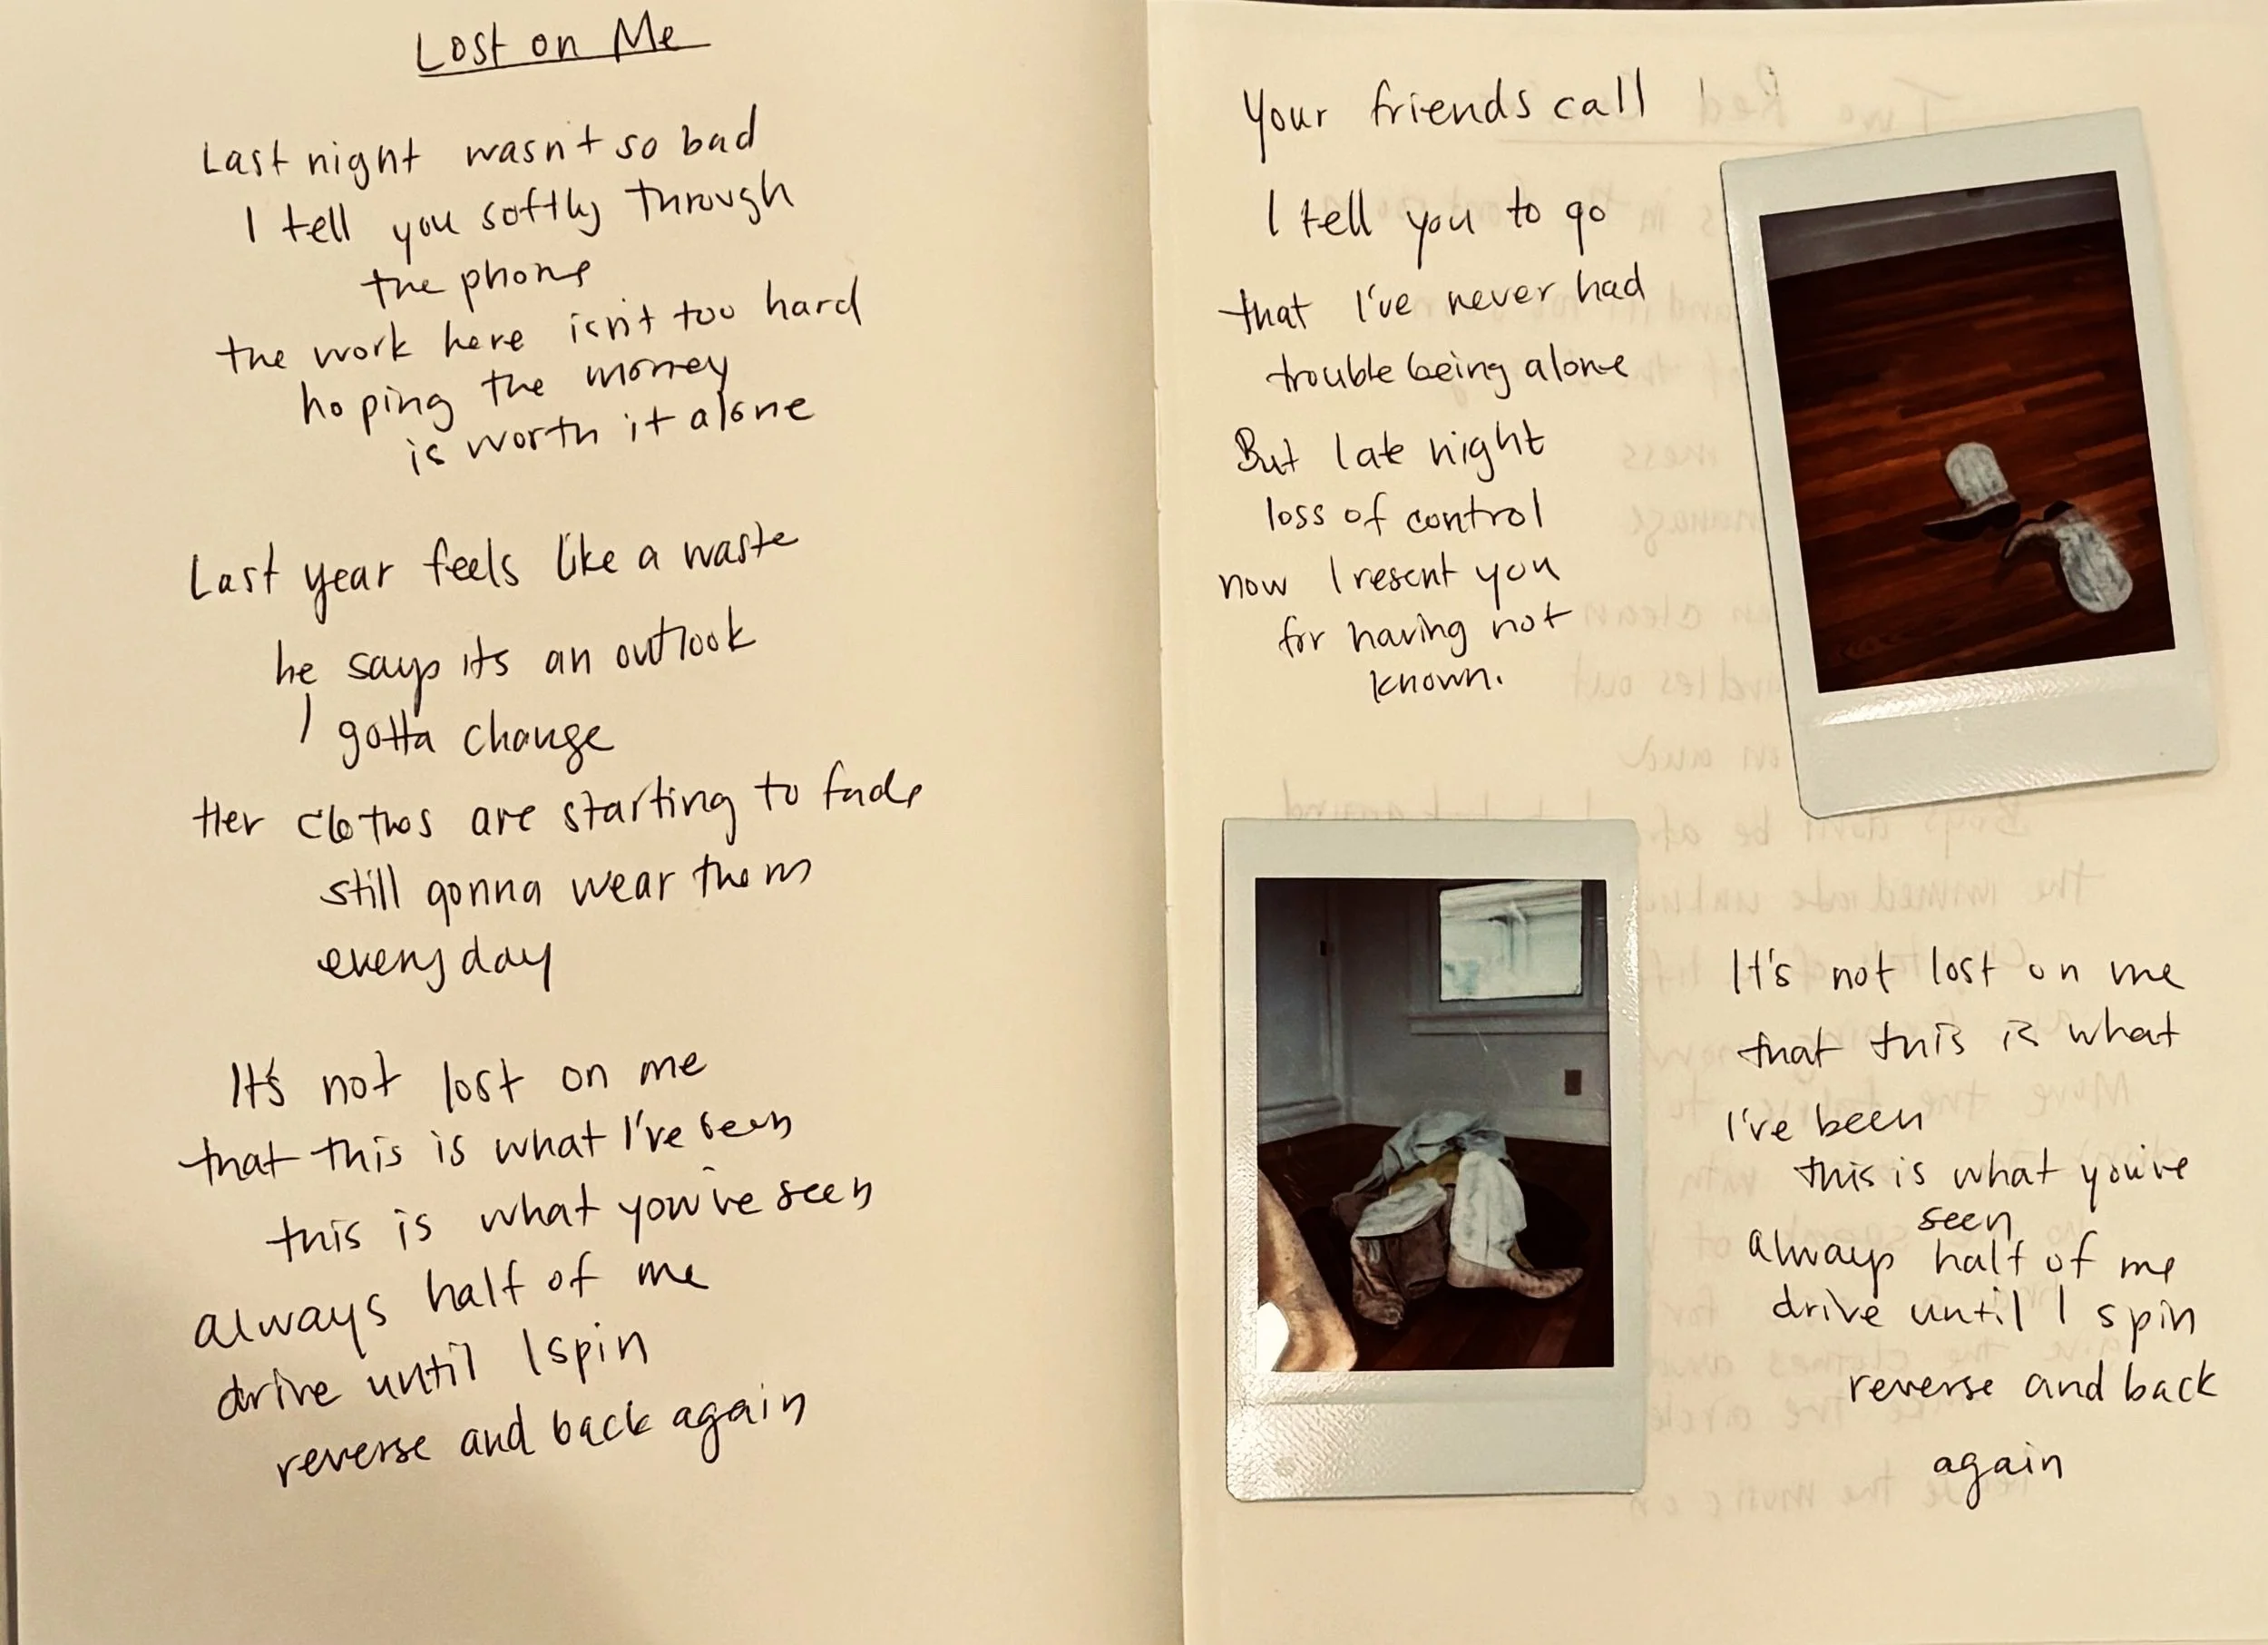 Lost on Me
Last night wasn't so bad
I tell you softly through
the phone
the work here isn't too hard
hoping the money
is worth it alone
Last year feels like a waste
he says its an outlook
I gotta change
Her clothes are starting to fade
still gonna wear them
everyday
It's not lost on me
that this is what I've been
this is what you've seen
always half of me
drive until I spin
reverse and back again
Your friends call
I tell you to go
that I've never had
trouble being alone
But late night
loss of control
now I resent you
for having not
known.
It's not lost on me
that this is what
I've been
this is what you've
seen
always half of me
drive until I spin
reverse and back
again